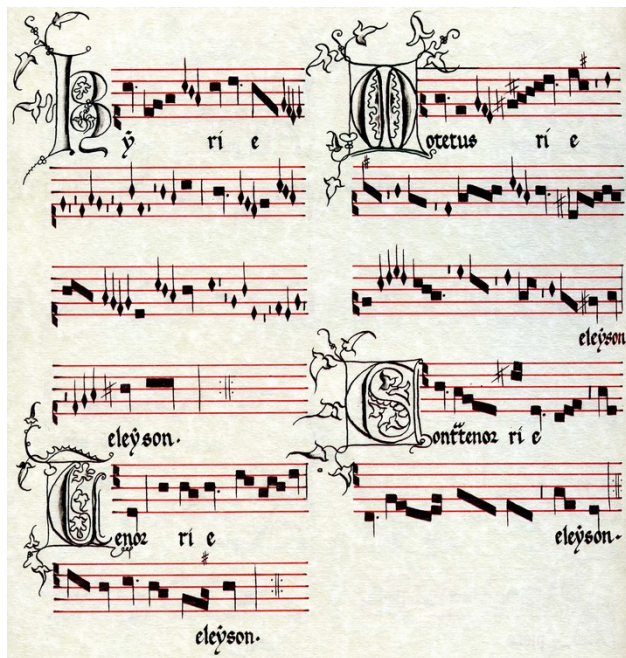 Kÿ ri e
eleÿson.
Tenor ri e
eleÿson.
Motetus ri e
eleÿson
Contratenor ri e
eleÿson.